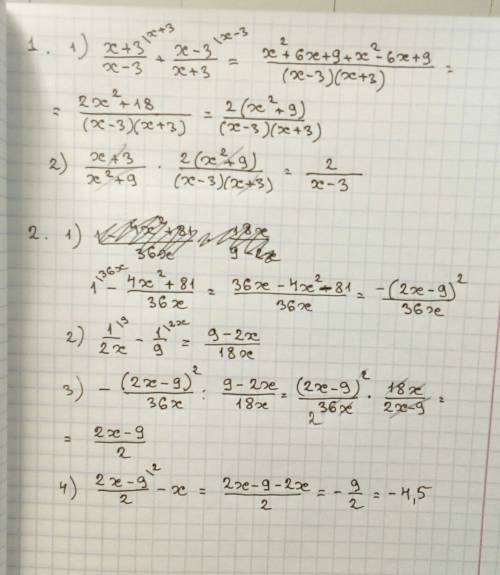 1. 1) (x+3)/(x-3) \x+3 + (x-3)/(x+3) \x-3 = (x²+6x+9+x²-6x+9)/((x-3)(x+3)) =
= (2x²+18)/((x-3)(x+3)) = (2(x²+9))/((x-3)(x+3))
2) (x+3)/(x²+9) · (2(x²+9))/((x-3)(x+3)) = 2/(x-3)
2. 1)
1 \36x - (4x²+81)/(36x) = (36x-4x²-81)/(36x) = (-(2x-9)²)/(36x)
2) 1/(2x) \9 - 1/9 \2x = (9-2x)/(18x)
3) - ((2x-9)²)/(36x) : (9-2x)/(18x) = ((2x-9)²)/(36x) 2 · (18x)/(2x-9) =
= (2x-9)/2
4) (2x-9)/2 - x \2 = (2x-9-2x)/2 = - 9/2 = -4,5